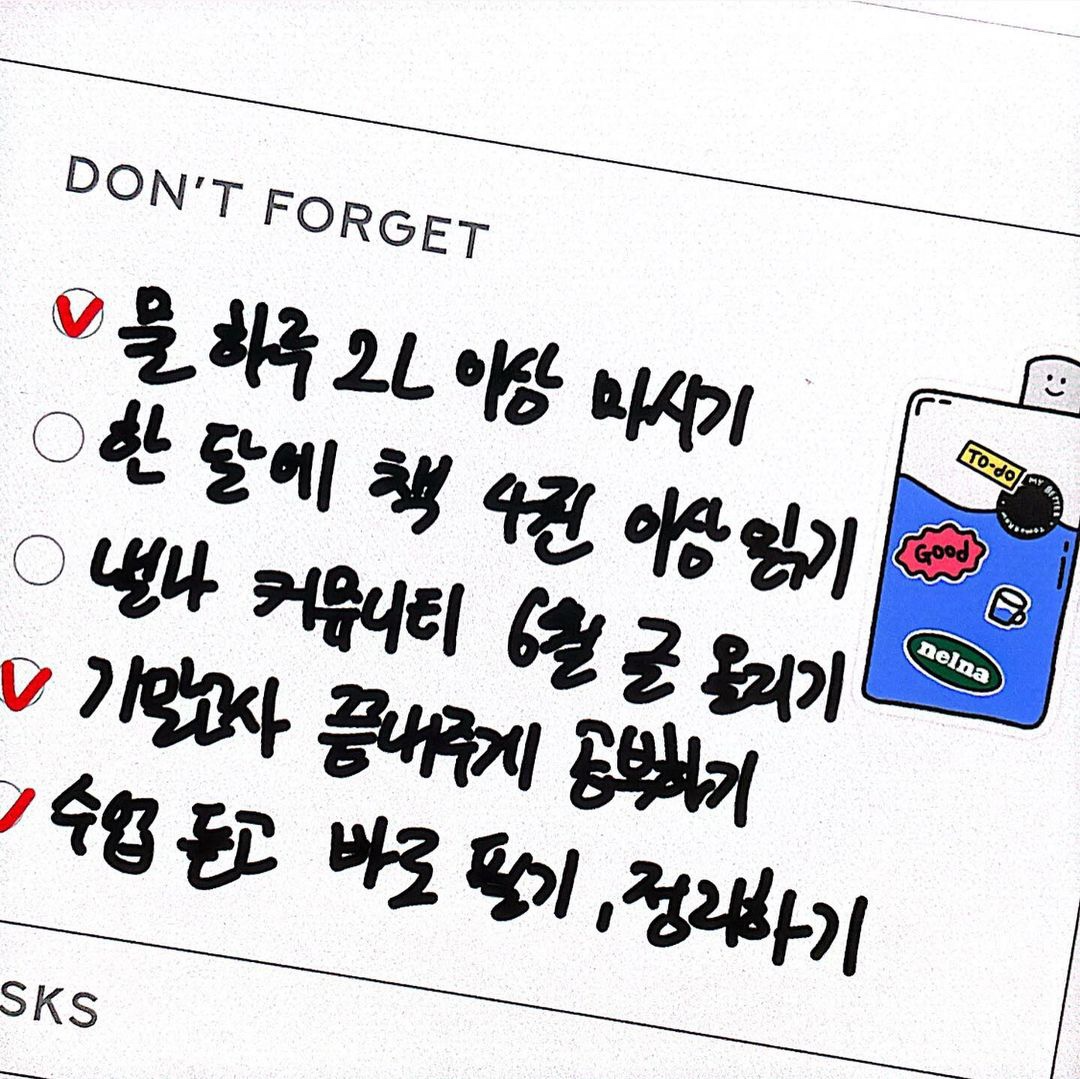 DON'T FORGET
물 하루 2L 이상 마시기
한 달에 책 4권 이상 읽기
낼나 커뮤니티 6월 글 올리기
기말고사 끝내주게 공부하기
수업 듣고 바로 필기, 정리하기
TO-do
MY BETTER TOMORROW
Good
nelna
SKS